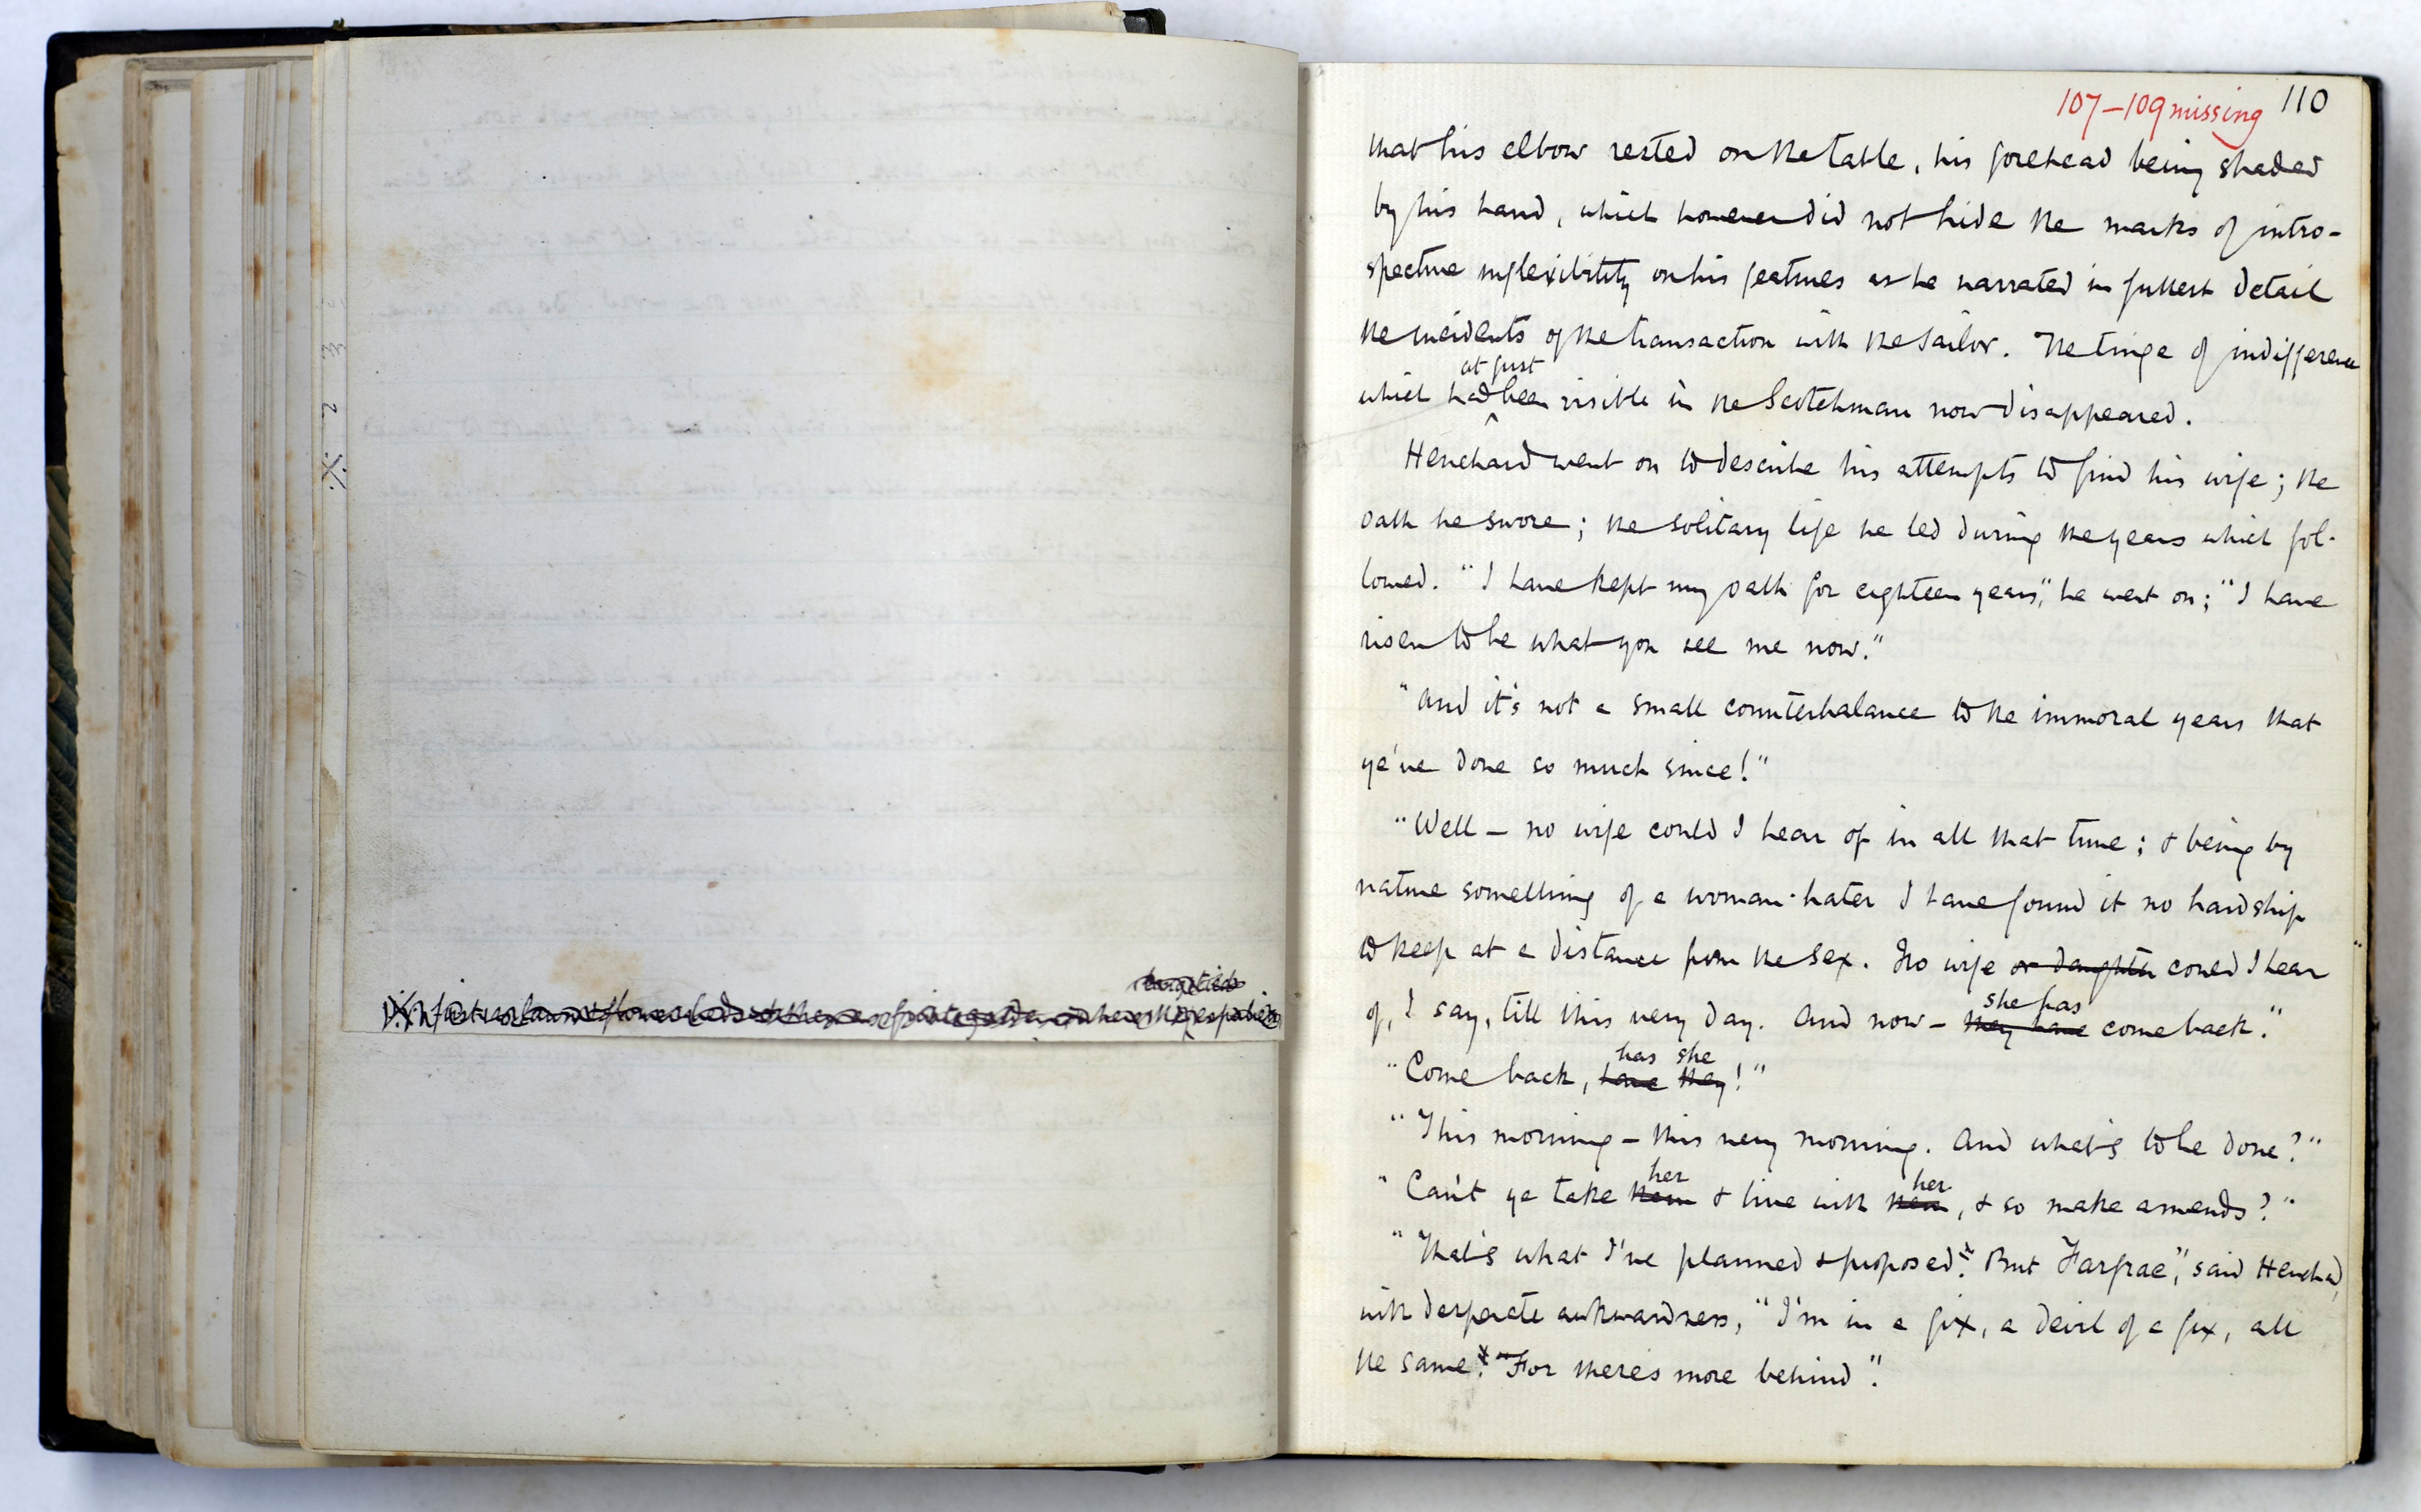 107–109 missing 110
that his elbow rested on the table, his forehead being shaded
by his hand, which however did not hide the marks of intro-
spective inflexibility on his features as he narrated in fullest detail
the incidents of the transaction with the sailor. The tinge of indifference
at first
which had been visible in the Scotchman now disappeared.
Henchard went on to describe his attempts to find his wife; the
oath he swore; the solitary life he led during the years which fol-
lowed. "I have kept my oath for eighteen years," he went on; "I have
risen to be what you see me now."
"And it's not a small counterbalance to the immoral years that
ye've done so much since!"
"Well — no wife could I hear of in all that time; & being by
nature something of a woman-hater I have found it no hardship
to keep at a distance from the sex. No wife or daughter could I hear
of, I say, till this very day. And now — they have she has come back."
"Come back, have they has she!"
"This morning — this very morning. And what's to be done?"
"Can't ye take them her & live with them her, & so make amends?"
"That's what I've planned & proposed. But Farfrae," said Henchard,
with desperate awkwardness, "I'm in a fix, a devil of a fix, all
the same. "For there's more behind".
X 2 3